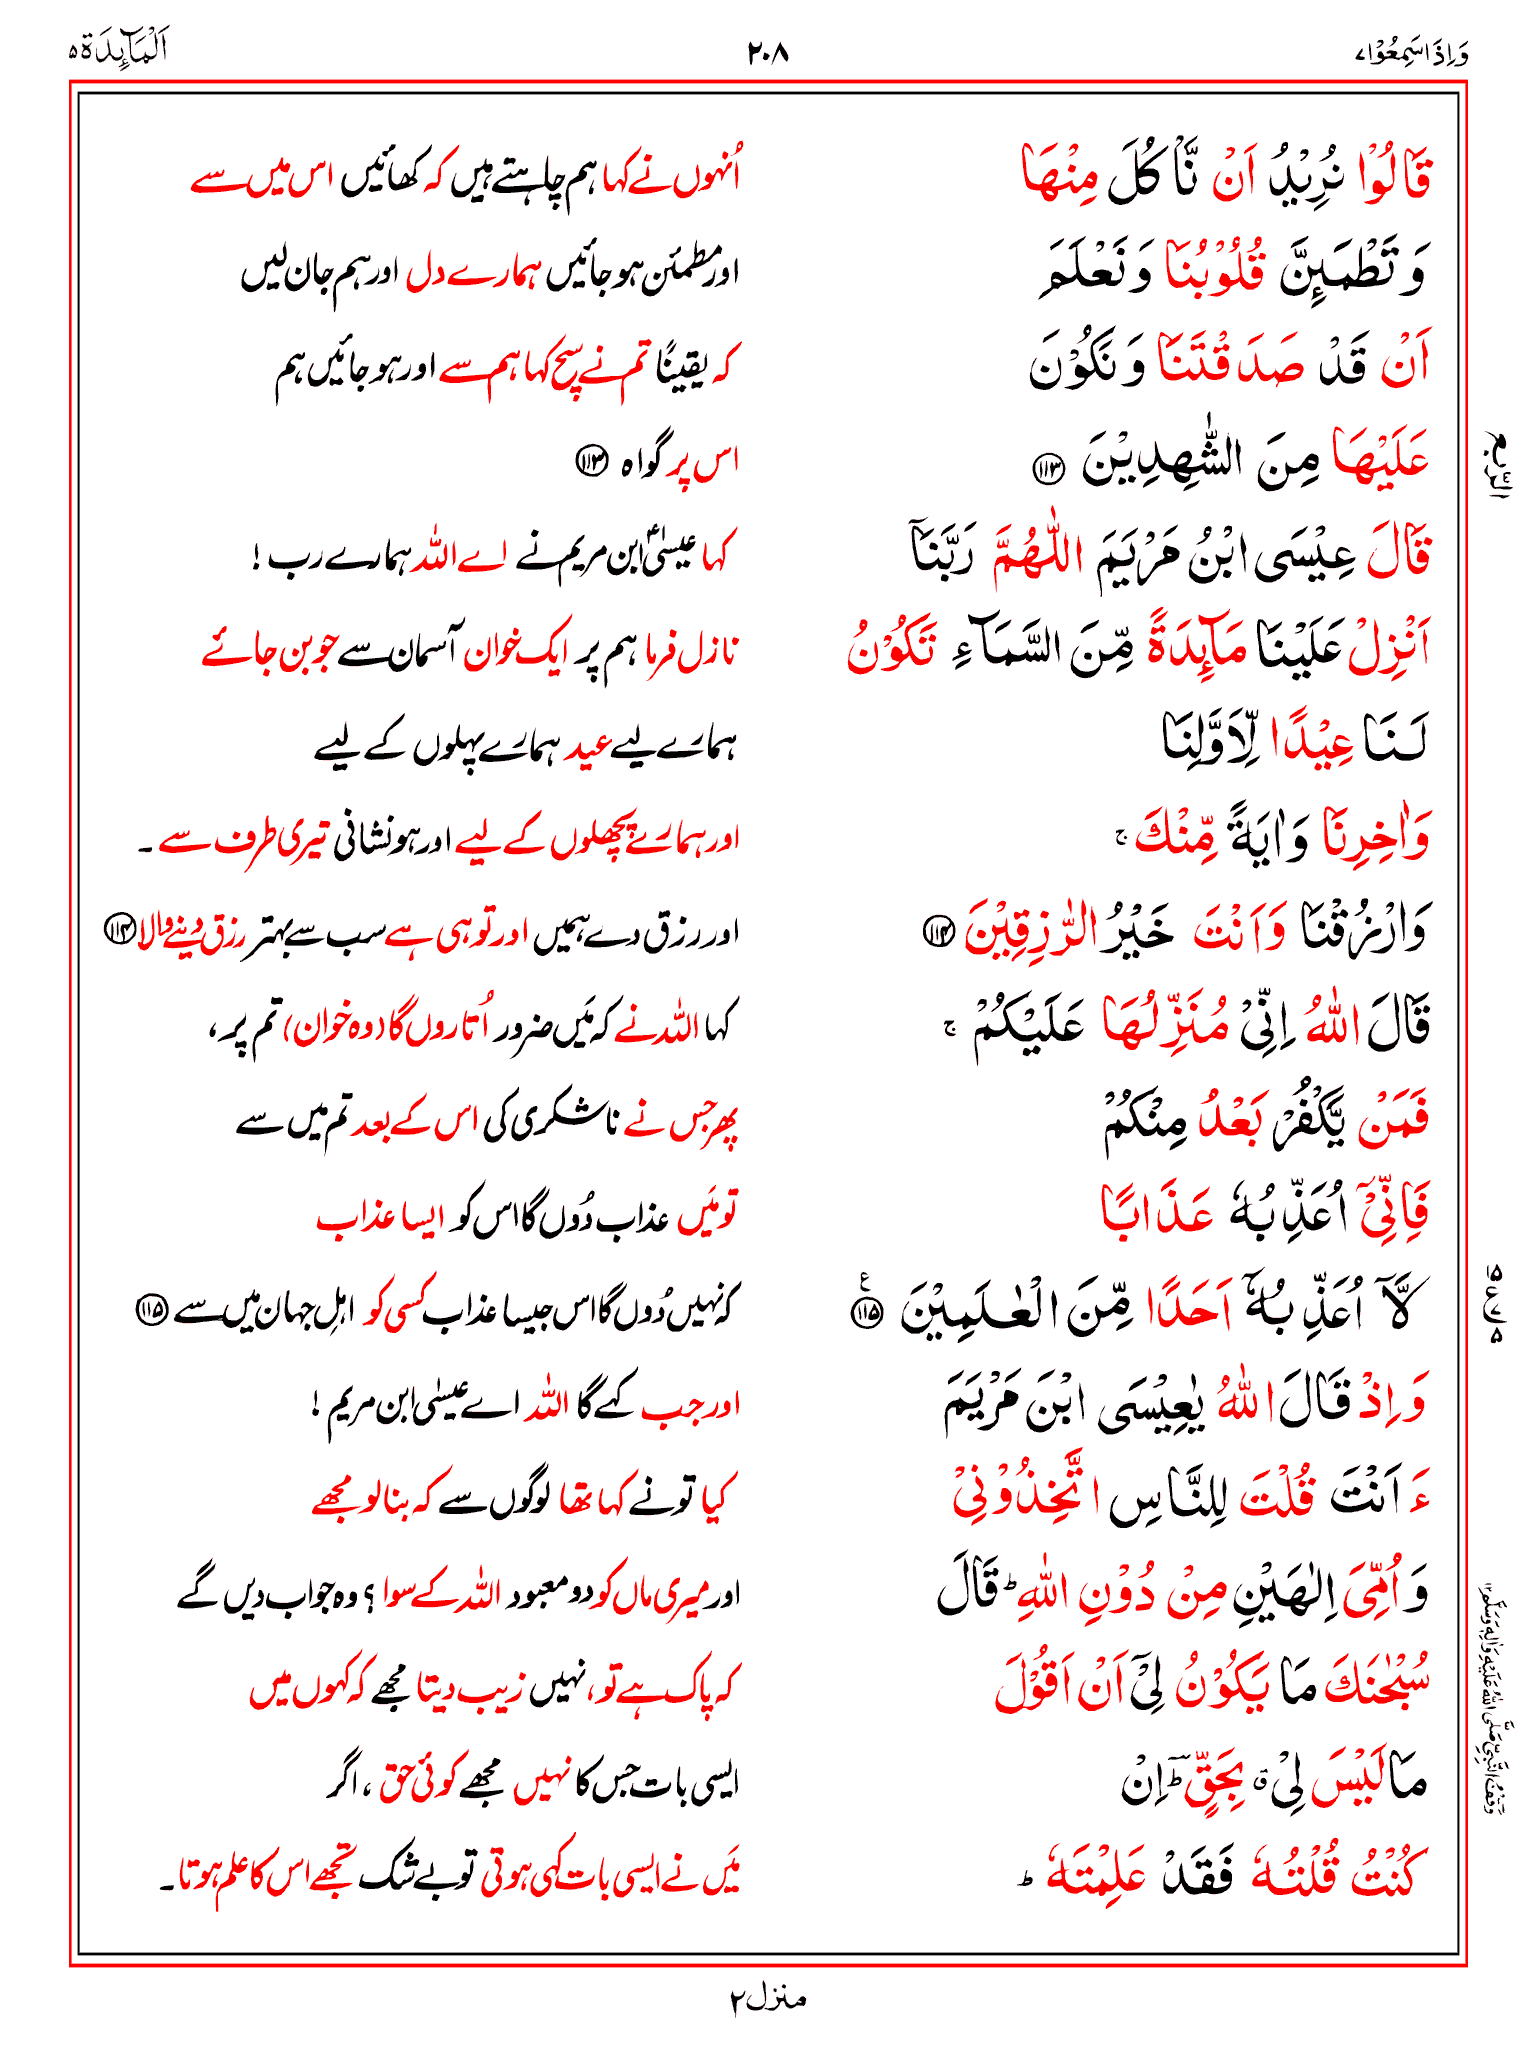 وَاِذَا سَمِعُوْا ۷
۲۰۸
اَلْمَآئِدَة ۵
قَالُوْا نُرِيْدُ اَنْ نَّاْكُلَ مِنْهَا
اُنہوں نے کہا ہم چاہتے ہیں کہ کھائیں اس میں سے
وَ تَطْمَئِنَّ قُلُوْبُنَا وَ نَعْلَمَ
اور مطمئن ہو جائیں ہمارے دل اور ہم جان لیں
اَنْ قَدْ صَدَقْتَنَا وَ نَكُوْنَ
کہ یقیناً تم نے سچ کہا ہم سے اور ہو جائیں ہم
عَلَيْهَا مِنَ الشّٰهِدِيْنَ ﴿۱۱۳﴾
اس پر گواہ ﴿۱۱۳﴾
الرُّبع
قَالَ عِيْسَى ابْنُ مَرْيَمَ اللّٰهُمَّ رَبَّنَاۤ
کہا عیسیٰؑ ابن مریم نے اے اللہ ہمارے رب !
اَنْزِلْ عَلَيْنَا مَآئِدَةً مِّنَ السَّمَآءِ تَكُوْنُ
نازل فرما ہم پر ایک خوان آسمان سے جو بن جائے
لَنَا عِيْدًا لِّاَوَّلِنَا
ہمارے لیے عید ہمارے پہلوں کے لیے
وَاٰخِرِنَا وَاٰيَةً مِّنْكَ ۚ
اور ہمارے پچھلوں کے لیے اور ہو نشانی تیری طرف سے ۔
وَارْزُقْنَا وَاَنْتَ خَيْرُ الرّٰزِقِيْنَ ﴿۱۱۴﴾
اور رزق دے ہمیں اور تو ہی ہے سب سے بہتر رزق دینے والا ﴿۱۱۴﴾
قَالَ اللّٰهُ اِنِّيْ مُنَزِّلُهَا عَلَيْكُمْ ۚ
کہا اللہ نے کہ مَیں ضرور اُتاروں گا (وہ خوان) تم پر،
فَمَنْ يَّكْفُرْ بَعْدُ مِنْكُمْ
پھر جس نے ناشکری کی اس کے بعد تم میں سے
فَاِنِّيْۤ اُعَذِّبُهٗ عَذَابًا
تو مَیں عذاب دُوں گا اس کو ایسا عذاب
لَّاۤ اُعَذِّبُهٗۤ اَحَدًا مِّنَ الْعٰلَمِيْنَ ﴿۱۱۵﴾ ع
کہ نہیں دُوں گا اس جیسا عذاب کسی کو اہلِ جہان میں سے ﴿۱۱۵﴾
وَ اِذْ قَالَ اللّٰهُ يٰعِيْسَى ابْنَ مَرْيَمَ
اور جب کہے گا اللہ اے عیسٰی ابن مریم !
ءَ اَنْتَ قُلْتَ لِلنَّاسِ اتَّخِذُوْنِيْ
کیا تو نے کہا تھا لوگوں سے کہ بنا لو مجھے
وَ اُمِّيَ اِلٰهَيْنِ مِنْ دُوْنِ اللّٰهِ ؕ قَالَ
اور میری ماں کو دو معبود اللہ کے سوا ؟ وہ جواب دیں گے
سُبْحٰنَكَ مَا يَكُوْنُ لِيْۤ اَنْ اَقُوْلَ
کہ پاک ہے تو، نہیں زیب دیتا مجھے کہ کہوں میں
وَقْفُ النَّبِيِّ صَلَّى اللّٰهُ عَلَيْهِ وَاٰلِهٖ وَسَلَّمَ ۱۲
مَا لَيْسَ لِيْ ۗ بِحَقٍّ ؕ اِنْ
ایسی بات جس کا نہیں مجھے کوئی حق ، اگر
كُنْتُ قُلْتُهٗ فَقَدْ عَلِمْتَهٗ ؕ
مَیں نے ایسی بات کہی ہوتی تو بے شک تجھے اس کا علم ہوتا ۔
منزل ۲